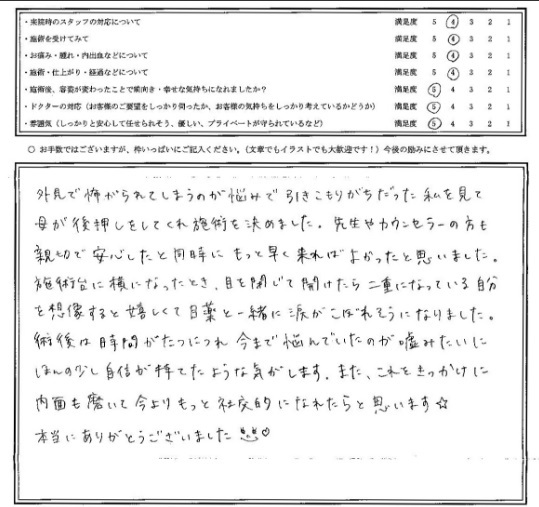 ・来院時のスタッフの対応について 満足度 5 4 3 2 1
・施術を受けてみて 満足度 5 4 3 2 1
・お痛み・腫れ・内出血などについて 満足度 5 4 3 2 1
・施術・仕上がり・経過などについて 満足度 5 4 3 2 1
・施術後、容姿が変わったことで前向き・幸せな気持ちになれましたか？ 満足度 5 4 3 2 1
・ドクターの対応（お客様のご要望をしっかり伺ったか、お客様の気持ちをしっかり考えているかどうか） 満足度 5 4 3 2 1
・雰囲気（しっかりと安心して任せられそう、優しい、プライベートが守られているなど） 満足度 5 4 3 2 1
○ お手数ではございますが、枠いっぱいにご記入ください。（文章でもイラストでも大歓迎です！）今後の励みにさせて頂きます。
外見で怖がられてしまうのが悩みで引きこもりがちだった私を見て
母が後押しをしてくれ施術を決めました。先生やカウンセラーの方も
親切で安心したと同時にもっと早く来ればよかったと思いました。
施術台に横になったとき、目を閉じて開けたら二重になっている自分
を想像すると嬉しくて目薬と一緒に涙がこぼれそうになりました。
術後は時間がたつにつれ今まで悩んでいたのが嘘みたいに
ほんの少し自信が持てたような気がします。また、これをきっかけに
内面も磨いて今よりもっと社交的になれたらと思います☆
本当にありがとうございました♡